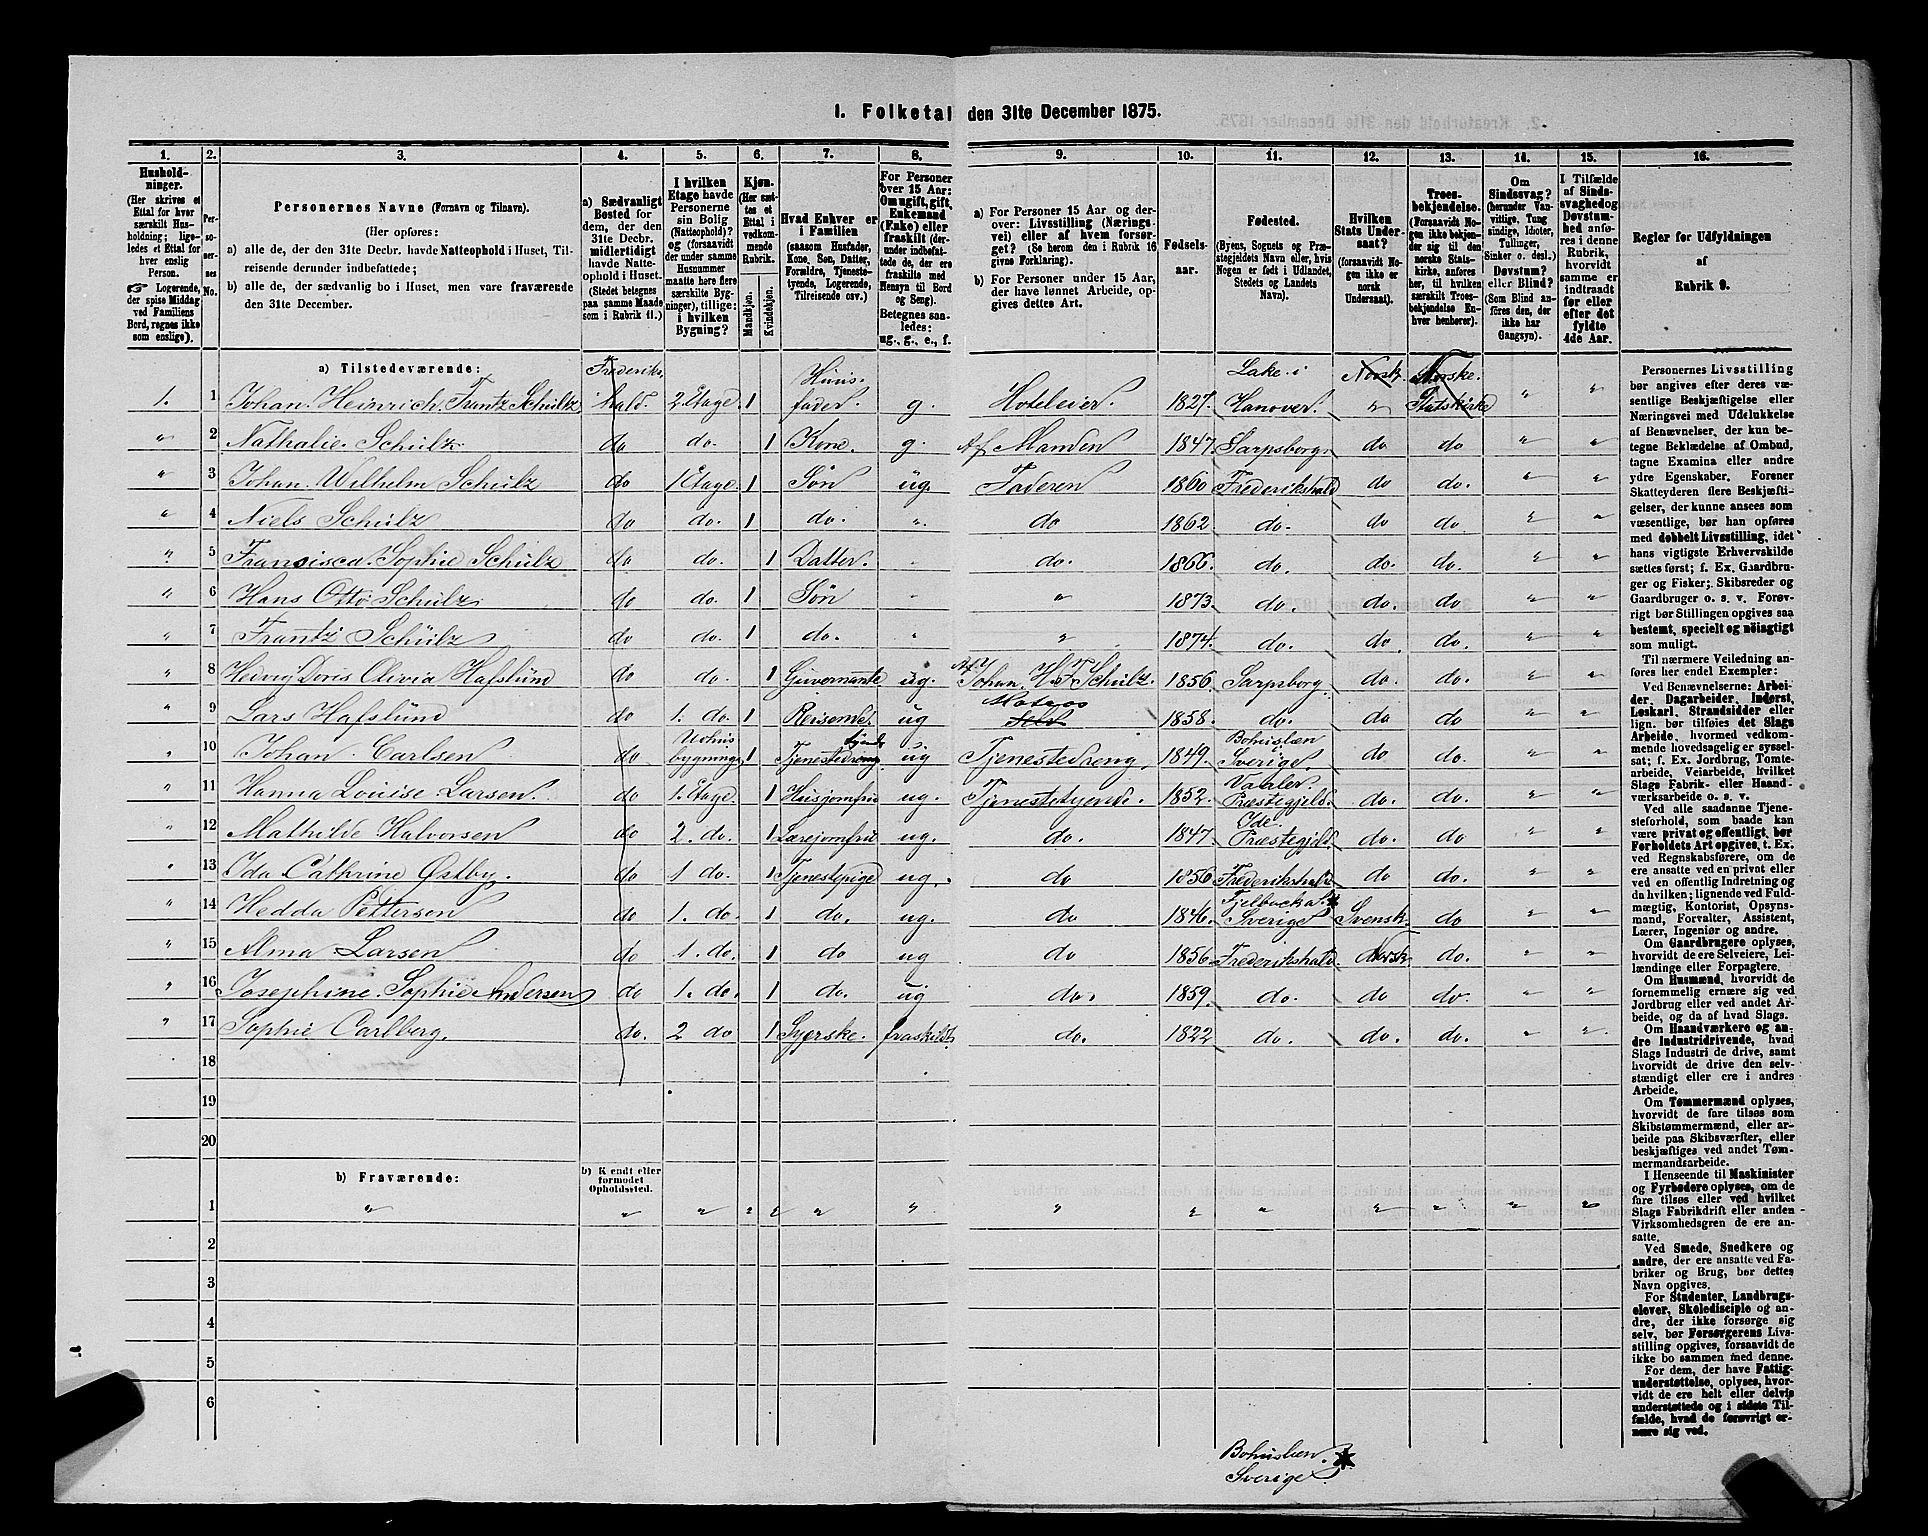 1. Folketal den 31te December 1875.
1. 2. 3. 4. 5. 6. 7. 8. 9. 10. 11. 12. 13. 14. 15. 16.
Husholdninger.
(Her skrives et
Ettal for hver
særskilt Husholdning;
ligeledes et Ettal for
hver enslig
Person.
Logerende,
der spise Middag
ved Familiens
Bord, regnes ikke
som enslige).
Personernes No.
Personernes Navne (Fornavn og Tilnavn).
(Her opføres:
a) alle de, der den 31te Decbr. havde Natteophold i Huset, Tilreisende derunder indbefattede;
b) alle de, der sædvanlig bo i Huset, men vare fraværende
den 31te December.
a) Sædvanligt
Bosted for
dem, der den
31te Decbr.
midlertidigt
havde Natteophold
i Huset.
(Stedet betegnes
paa samme Maade
som i Rubrik 11.)
I hvilken
Etage havde
Personerne
sin Bolig
(Natteophold)?
og (forsaavidt
der under samme
Husnummer
maatte høre flere
særskilte Bygninger),
tillige:
i hvilken
Bygning?
Kjøn.
(Her sættes
et
Ettal i
vedkommende
Rubrik.
Mandkjøn.
Kvindekjøn.
Hvad Enhver er
i Familien
(saasom Husfader,
Kone, Søn, Datter,
Forældre, Tjenestetyende,
Logerende,
Tilreisende osv.)
For Personer
over 15 Aar:
Om ugift, gift,
Enkemand
(Enke) eller
fraskilt (derunder
indbefattede
de, der ere
fraskilte med
Hensyn til Bord
og Seng).
Betegnes saaledes:
ug., g., e., f.
a) For Personer 15 Aar og derover:
Livsstilling (Næringsvei)
eller af hvem forsørget?
(Se herom den i Rubrik 16
givne Forklaring).
b) For Personer under 15 Aar,
der have lønnet Arbeide, opgives
dettes Art.
Fødselsaar.
Fødested.
(Byens, Sognets og Præstegjeldets
Navn eller, hvis
Nogen er født i Udlandet,
Stedets og Landets
Navn).
Hvilken
Stats Undersaat?
(forsaavidt Nogen
ikke er
norsk
Undersaat).
Troesbekjendelse.
(Forsaavidt Nogen
ikke bekjender
sig til den
norske Statskirke,
anføres
her, til hvilken
særskilt Troesbekjendelse
Enhver
henhører).
Om
Sindssvag?
(herunder Vanvittige,
Tungsindige,
Idioter,
Tullinger,
Sinker o. desl.)
Døvstum?
eller Blind?
(Som Blind anføres
den, der
ikke har
Gangsyn).
I Tilfælde
af Sindssvaghed
og
Døvstumhed
anføres
i denne
Rubrik,
hvorvidt
samme er
indtraadt
før eller
efter det
fyldte
4de Aar.
Regler for Udfyldningen
af
Rubrik 9.
a) Tilstedeværende:
1. 1 Johan Heinrich Frantz Schultz Frederikshald. 2 Etage. 1 Huusfader. g. Hoteleier. 1827. Lake i Hanover. Norsk. Norske Statskirke
2 Nathalie Schülz do do. 1 Kone. g. Af Manden 1847. Sarpsborg. do do
3 Johan Wilhelm Schülz do 1 Etage. 1 Søn ug. Faderen 1860 Frederikshald do do.
4 Niels Schülz do do. 1 do. " do 1862. do. do do
5 Francisca Sophie Schülz do do. 1 Datter. do. 1866. do. do. do
6 Hans Otto Schülz do do. 1 Søn " 1873. do. do. do
7 Frantz Schülz do do. 1 do. " " 1874. do. do. do
8 Hedvig Doris Olivia Hafslünd do do. 1 Guvernante ug. Af Johan H. F. Schülz. 1856. Sarpsborg. do. do.
9 Lars Hafslünd do 1. do. 1 Reisende. ug Matros 1858. do. do do
10 Johan Carlsen do Udhusbygning 1 Tjenestedreng ug Tjenestedreng. 1849. Bohuslæn i Sverige do do.
11 Hanna Louise Larsen do 1. Etage. 1 Husjomfru ug. Tjenestetyende. 1852. Vaaler Præstegjeld. do. do.
12 Mathilde Halvorsen do 2. do. 1 Lærejomfru ug. do. 1847 Ide. Præstegjeld. do. do.
13 Ida Cathrine Østby. do 1 do. 1 Tjenestepige ug. do 1856 Frederikshald do do.
14 Hedda Petterson do 1. do. 1 do. ug. do 1846. Fjelbacka Sverige Svensk do
15 Alma Larsen do 1. do. 1 do ug do 1856. Frederikshald Norsk do.
16 Josephine Sophie Andersen do 1. do. 1 do. ug do. 1859. do. do do.
17 Sophie Carlberg. do. 2 do 1 Syerske. fraskildt do. 1822 do. do. do.
18
19
20
b) Fraværende:
b) Kendt eller
formodet
Opholdssted.
1
2
3
4
5
6
Personernes Livsstilling
bør angives efter deres væsentlige
Beskjæftigelse eller
Næringsvei med Udelukkelse
af Benævnelser, der kun betegne
Beklædelse af Ombud,
tagne Examina eller andre
ydre Egenskaber. Forener
Skatteyderen flere Beskjæftigelser,
der kunne ansees som
væsentlige, bør han opføres
med dobbelt Livsstilling, idet
hans vigtigste Erhvervskilde
sættes først; f. Ex. Gaardbruger
og Fisker; Skibsreder og
Gaardbruger o. s. v. Forøvrigt
bør Stillingen opgives saa
bestemt, specielt og nöiagtigt
som muligt.
Til nærmere Veiledning anføres
her endel Exempler:
Ved Benævnelserne: Arbeider,
Dagarbeider, Inderst,
Løskarl, Strandsidder eller
lign. bør tilføies det Slags
Arbeide, hvormed vedkommende
hovedsagelig er sysselsat;
f. Ex. Jordbrug, Tomtearbeide,
Veiarbeide, hvilket
Slags Fabrik- eller Haandværksarbeide
o. s. v.
Ved alle saadanne Tjenesteforhold,
som baade kan
være privat og offentligt, bør
Forholdets Art opgives, t. Ex.
ved Regnskabsførere, om de
ere ansatte ved en privat eller
ved en offentlig Indretning og
da hvilken; lignende ved Fuldmægtig,
Kontorist, Opsynsmand,
Forvalter, Assistent,
Lærer, Ingeniør og andre.
Om Gaardbrugere oplyses,
hvorvidt de ere Selveiere, Leilændinge
eller Forpagtere.
Om Husmænd, hvorvidt de
fornemmelig ernære sig ved
Jordbrug eller ved andet Arbeide,
og da af hvad Slags.
Om Haandværkere og andre
Industridrivende, hvad
Slags Industri de drive, samt
hvorvidt de drive den selvstændigt
eller ere i andres
Arbeide.
Om Tømmermænd oplyses,
hvorvidt de fare tilsøs som
Skibstømmermænd, eller arbeide
paa Skibsværfter, eller
beskjæftiges ved andet Tømmermandsarbeide.
I Henseende til Maskinister
og Fyrbødere oplyses, om de
fare tilsøs eller ved hvilket
Slags Fabrikdrift eller anden
Virksomhedsgren de ere ansatte.
Ved Smede, Snedkere og
andre, der ere ansatte ved Fabriker
og Brug, bør dettes
Navn opgives.
For Studenter, Landbrugselever,
Skoledisciple og andre,
der ikke forsørge sig
selv, bør Forsørgerens Livsstilling
opgives, forsaavidt de
ikke bo sammen med denne.
For dem, der have Fattigunderstøttelse,
oplyses, hvorvidt
de ere helt eller delvis
understøttede og i sidste Tilfælde,
hvad de forøvrigt ernære
sig ved.
Bohuslæn.
Sverige